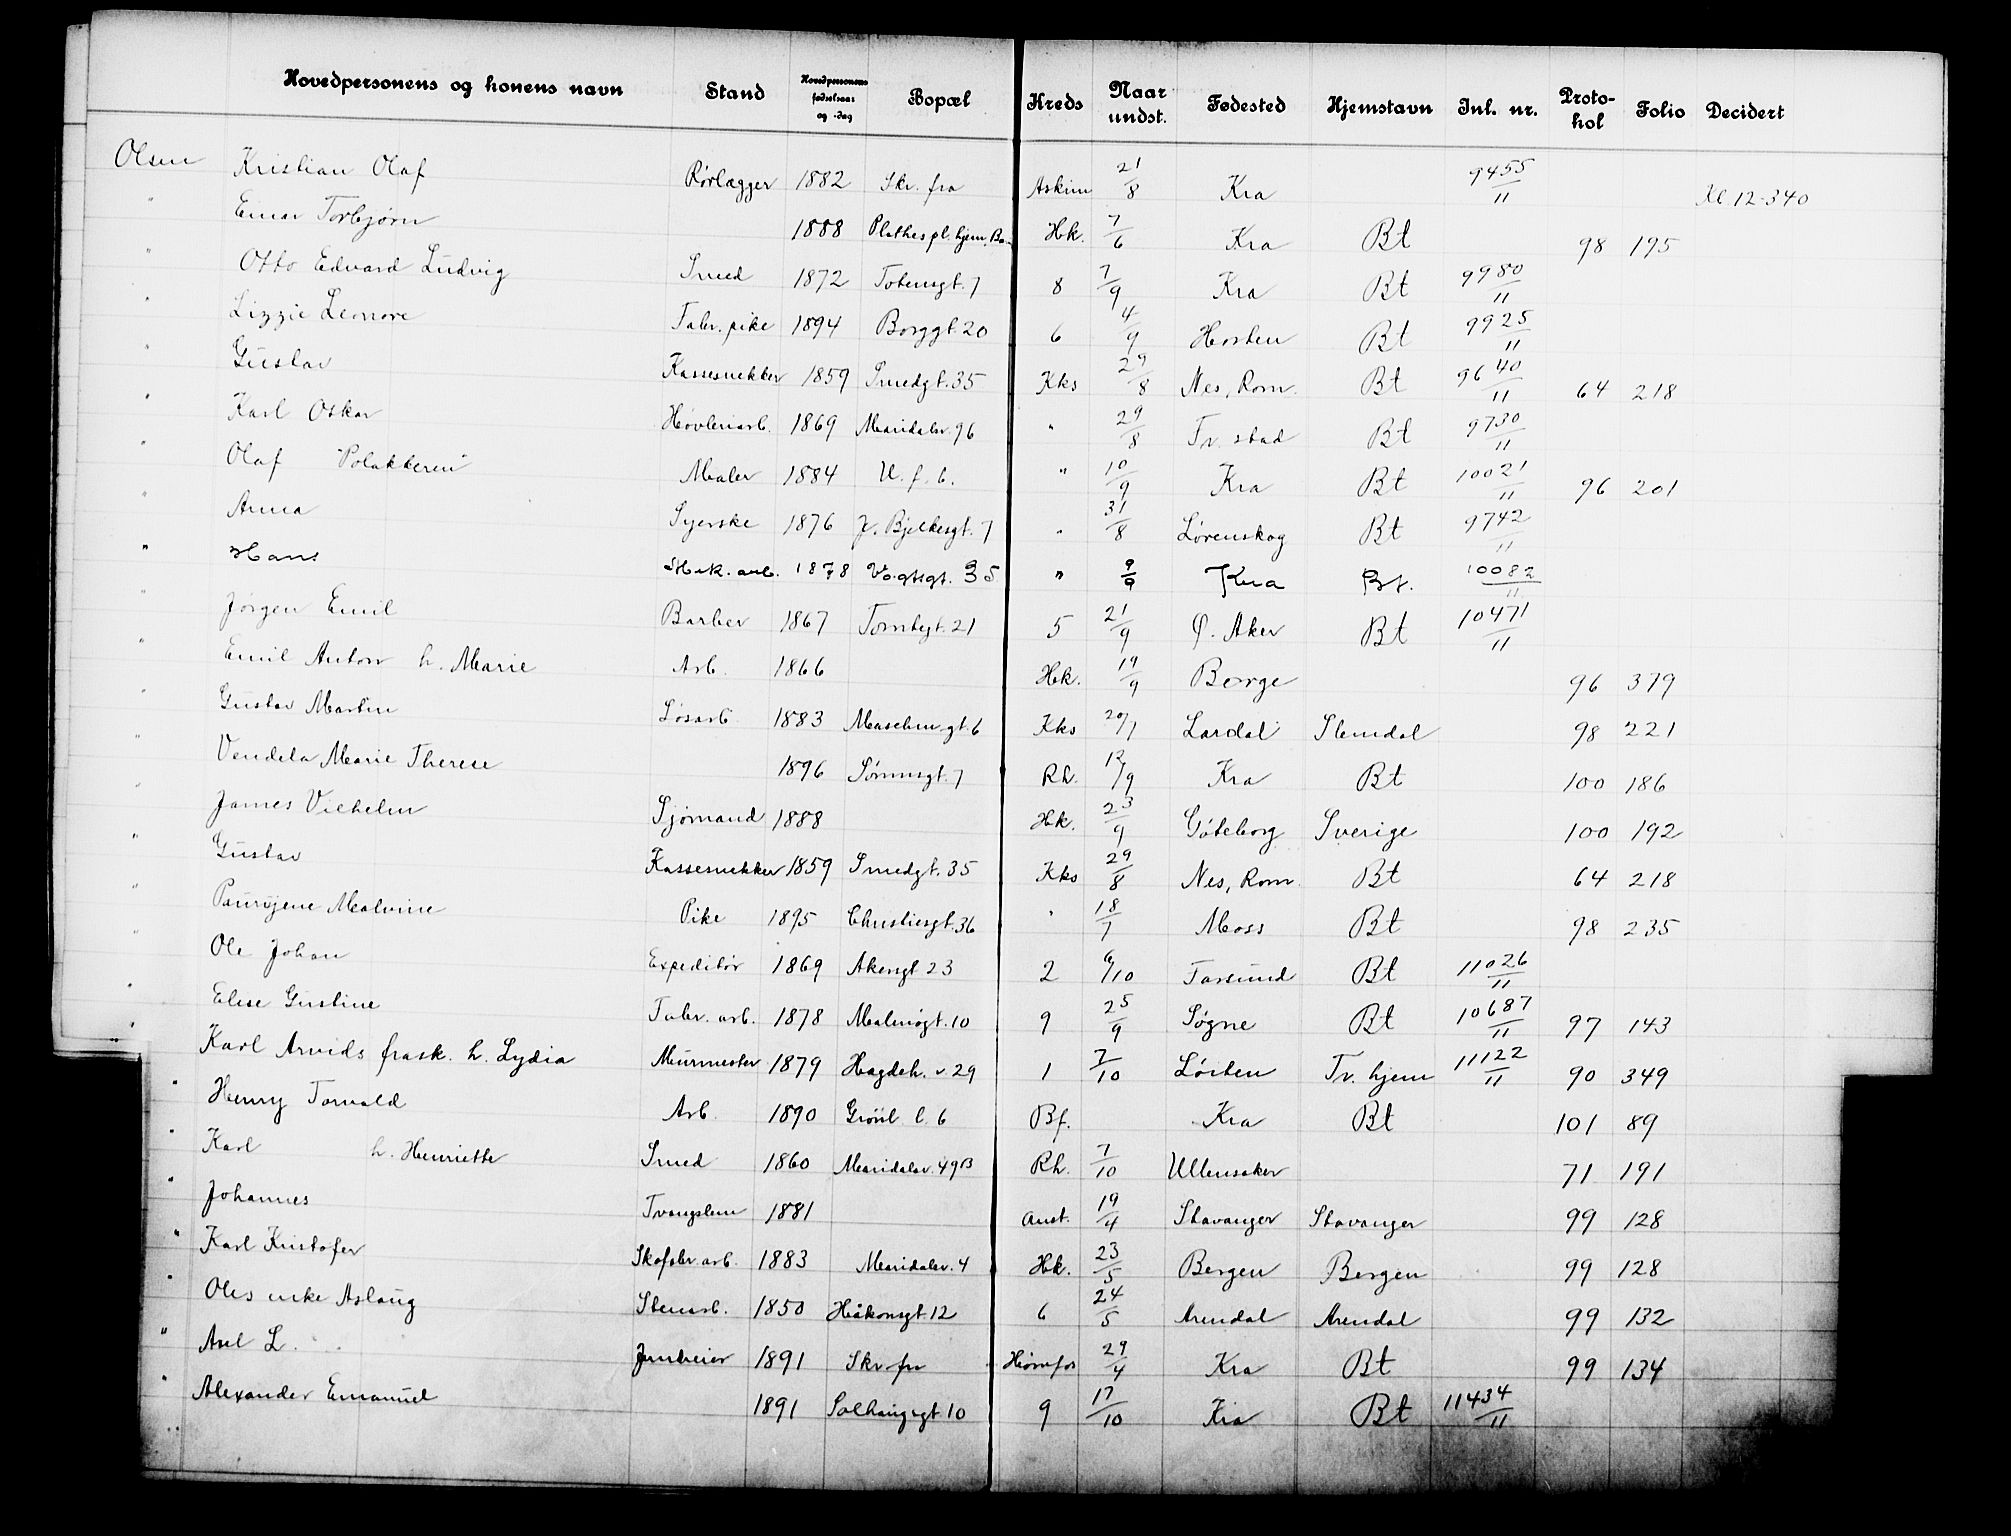 Hovedpersonens og konens navn Stand Hovedpersonens fødselsaar og -dag Bopæl Kreds Naar undst. Fødested Hjemstavn Inl. nr. Protokol Folio Decidert
Olsen Kristian Olaf Rørlægger 1882 Skr. fra Askim 21/8 Kra 9455/11 Kl. 12-340
" Einar Torbjørn 1888 Plathes pl. hjem, Bæ. Hk. 7/6 Kra Bt 98 195
" Otto Edvard Ludvig Smed 1872 Totensgt. 7 8 7/9 Kra Bt 9980/11
" Lizzie Leonore Fabr. pike 1894 Borggt. 20 6 4/9 Horten Bt 9925/11
" Gustav Kassesnekker 1859 Smedgt. 35 Kks 29/8 Nes, Rom. Bt 9640/11 64 218
" Karl Oskar Høvleriarb. 1869 Maridalsv. 96 " 29/8 Fr. stad Bt 9730/11
" Olaf "Polakkeren" Maler 1884 U. f. b. " 10/9 Kra Bt 10021/11 96 201
" Anna Syerske 1876 J. Bjelkesgt. 7 " 31/8 Lørenskog Bt 9742/11
" Hans Mek. arb. 1878 Vogtsgt. 35 " 9/9 Kra Bt. 10082/11
" Jørgen Emil Barber 1867 Tomtegt. 21 5 21/9 Ø. Aker Bt 10471/11
" Emil Anton h. Marie Arb. 1866 Hk. 19/9 Borge 96 379
" Gustav Martin Løsarb. 1883 Maschin.gt. 6 Kks 20/7 Lardal Slemdal 98 221
" Vendela Marie Therese 1896 Sørumsgt. 7 Rh. 12/9 Kra Bt 100 186
" James Vilhelm Sjømand 1888 Hk. 23/9 Göteborg Sverige 100 192
" Gustav Kassesnekker 1859 Smedgt. 35 Kks 29/8 Nes, Rom. Bt 64 218
" Malvine Pike 1895 Christiesgt. 36 " 18/7 Moss Bt 98 235
" Ole Johan Expeditör 1869 Akersgt 23 2 6/10 Farsund Bt 11026/11
" Elise Gustine Fabr. arb. 1878 Malmøgt. 10 9 25/9 Søgne Bt 10687/11 97 143
" Karl Arvids frask. h. Lydia Murmester 1879 Hagdeh. v. 29 1 7/10 Löiten Fr. hjem 11122/11 90 349
" Henry Torvald Arb. 1890 Grönl. l. 6 Bf. Kra Bt 101 89
" Karl h. Henriette Smed 1860 Maridalsv. 49B Rh. 7/10 Ullensaker 71 191
" Johannes Tvangslem 1881 Anst. 19/4 Stavanger Stavanger 99 128
" Karl Kristofer Skofabr. arb. 1883 Maridalsv. 4 Hk. 23/5 Bergen Bergen 99 128
" Oles enke Aslaug Stenarb. 1850 Håkonsgt. 12 6 24/5 Arendal Arendal 99 132
" Axel L. Jernbeier 1891 Skr. fra Hønefos 29/4 Kra Bt 99 134
" Alexander Emanuel 1891 Solhauggt. 10 9 17/10 Kra Bt 11434/11